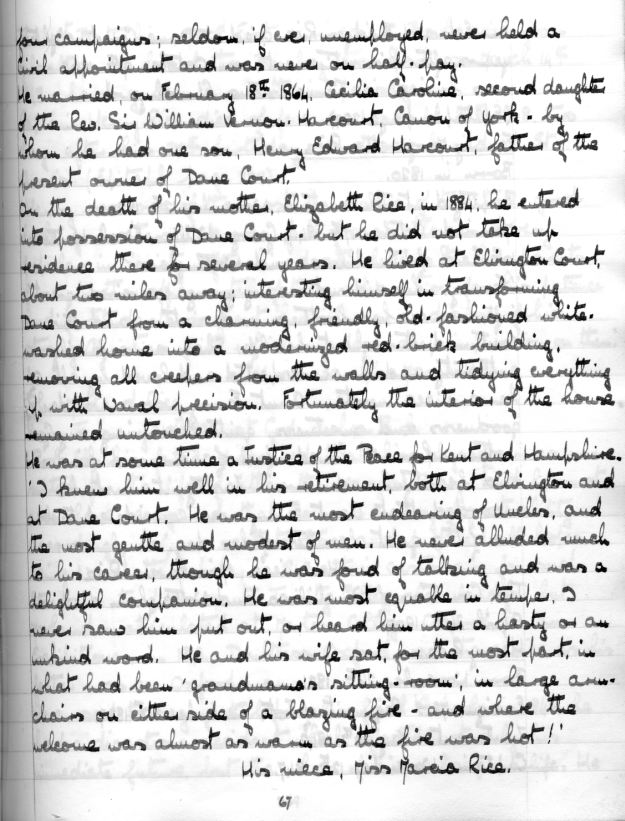 four campaigns; seldom, if ever, unemployed, never held a
Civil appointment and was never on half-pay.
He married, on February 18th 1864, Cecilia Caroline, second daughter
of the Rev. Sir William Vernon-Harcourt, Canon of York - by
whom he had one son, Henry Edward Harcourt, father of the
present owner of Dane Court.
On the death of his mother, Elizabeth Rice, in 1884, he entered
into possession of Dane Court - but he did not take up
residence there for several years. He lived at Elvington Court,
about two miles away; interesting himself in transforming
Dane Court from a charming, friendly old-fashioned white-
washed home into a modernized red-brick building,
removing all creepers from the walls and tidying everything
up with Naval precision. Fortunately the interior of the house
remained untouched.
He was at some time a Justice of the Peace for Kent and Hampshire.
'I knew him well in his retirement, both at Elvington and
at Dane Court. He was the most endearing of Uncles, and
the most gentle and modest of men. He never alluded much
to his career, though he was fond of talking and was a
delightful companion. He was most equable in temper, I
never saw him put out, or heard him utter a hasty or an
unkind word. He and his wife sat, for the most part, in
what had been 'grandmama's sitting-room', in large arm-
chairs on either side of a blazing fire - and where the
welcome was almost as warm as the fire was hot!'
His niece, Miss Marcia Rice.
67